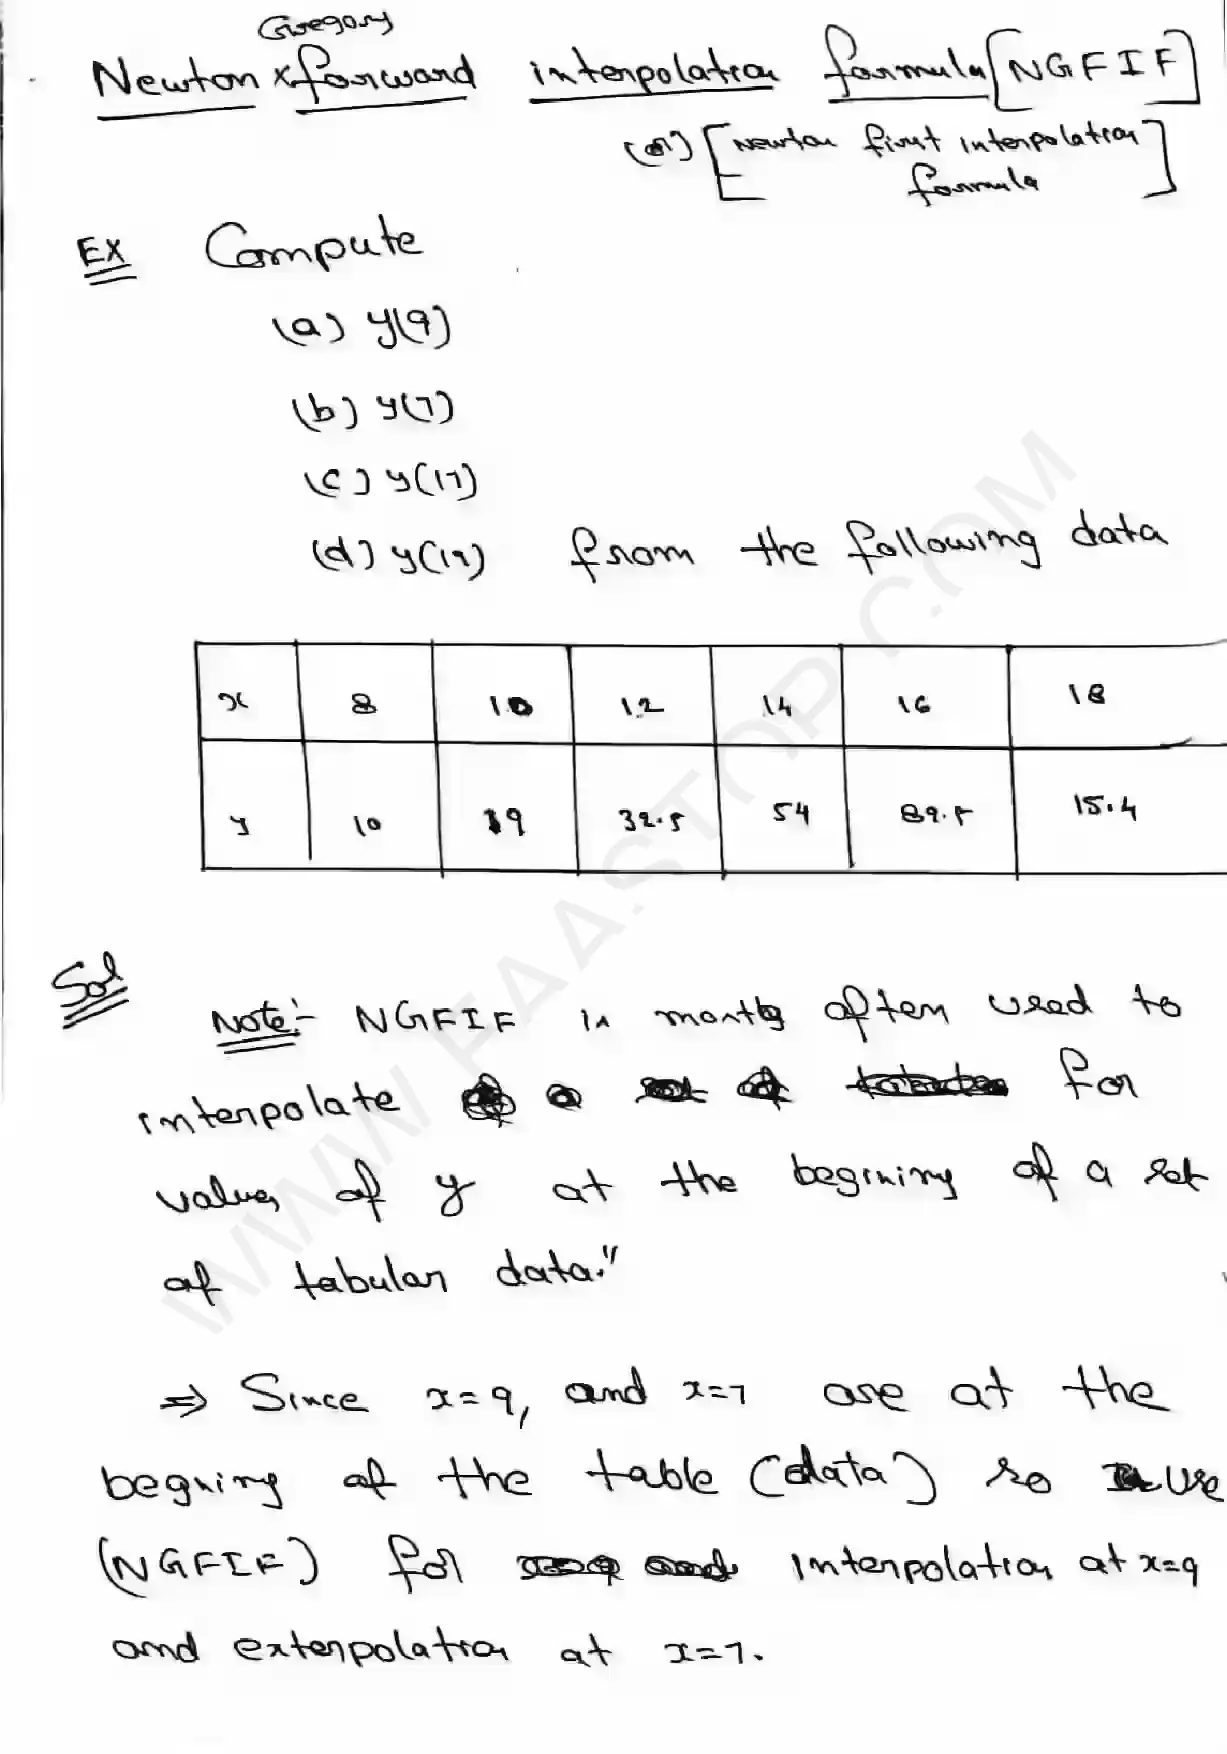 Gregory
Newton x forward interpolation formula [NGFIF]
(or) [Newton first interpolation
formula]
EX Compute
(a) y(9)
(b) y(7)
(c) y(17)
(d) y(19) from the following data
x 8 10 12 14 16 18
y 10 19 32.5 54 89.5 15.4
Sol
Note:- NGFIF is mostly often used to
interpolate for
values of y at the begining of a set
of tabular data."
⇒ Since x=9, and x=7 are at the
begining of the table (data) so use
(NGFIF) for interpolation at x=9
and exterpolation at x=7.
WWW.FAASTOP.COM